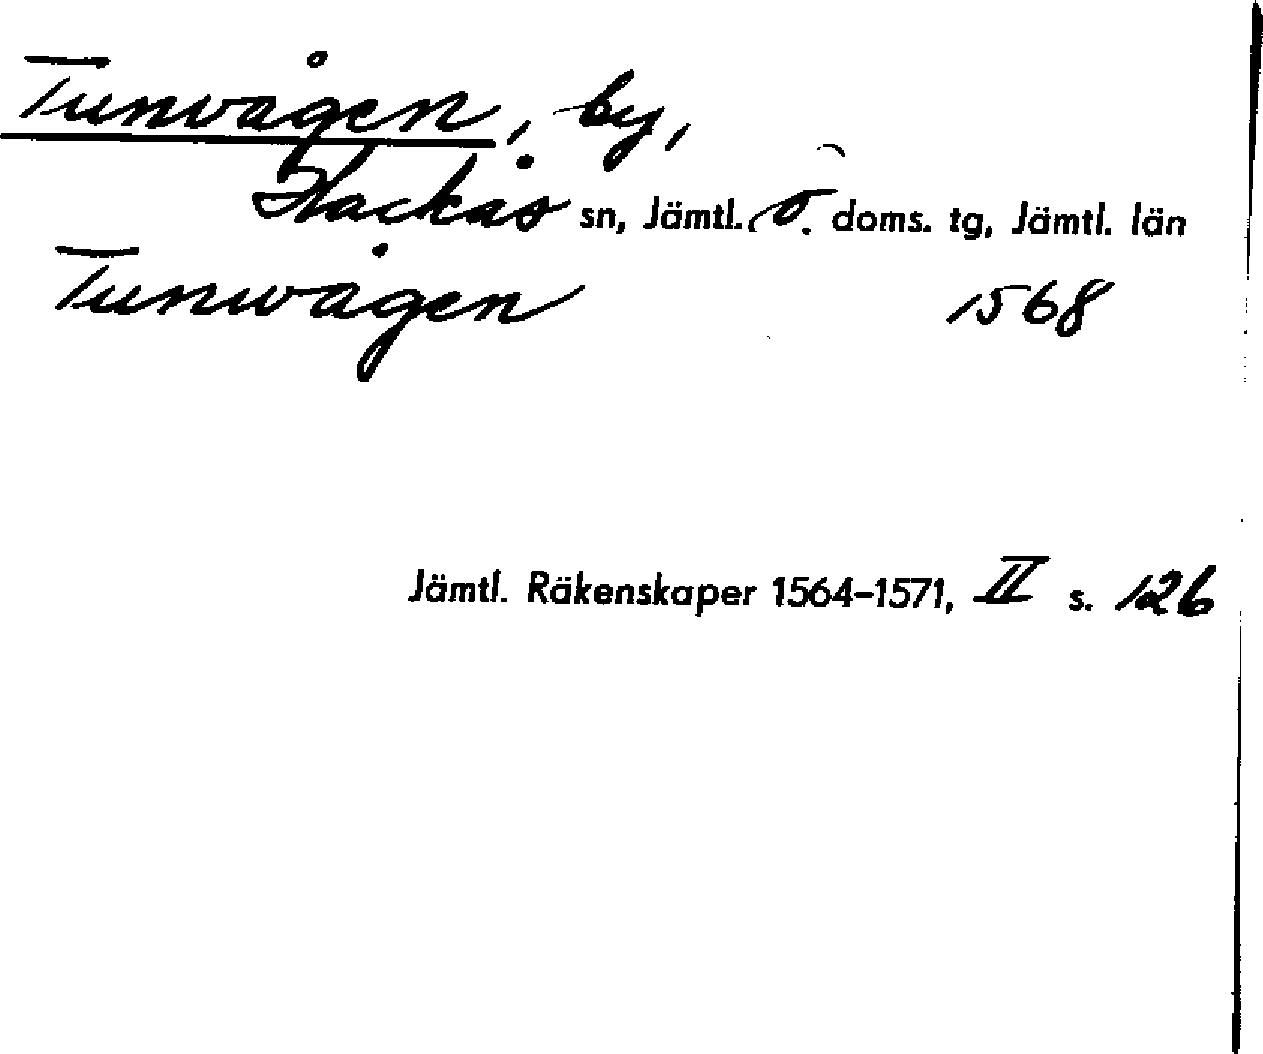 Tunvågen, by,
Hackås sn, Jämtl. ö. doms. tg, Jämtl. län
Tunwågen 1568
Jämtl. Räkenskaper 1564-1571, II s. 126